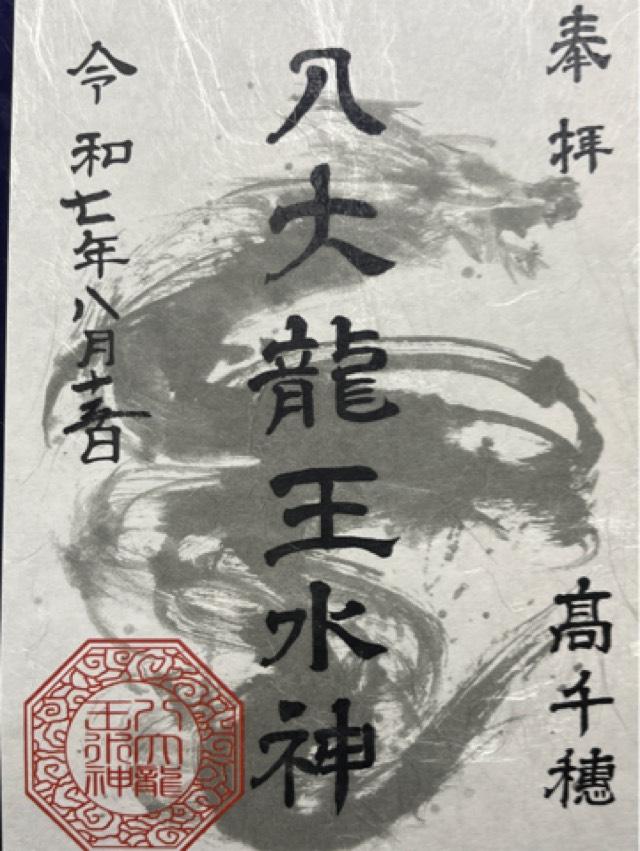 奉拝
高千穂
八大龍王水神
令和七年八月十五日
八大龍
王水神